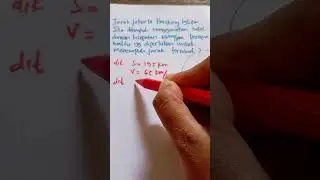 Jarak Jakarta Bandung 195 km
Jika ditempuh menggunakan mobil
dengan kecepatan 65 km/jam berapa
waktu yg diperlukan untuk
menempuh jarak tersebut ?
dik S = 195 km
V = 65 km/
dit